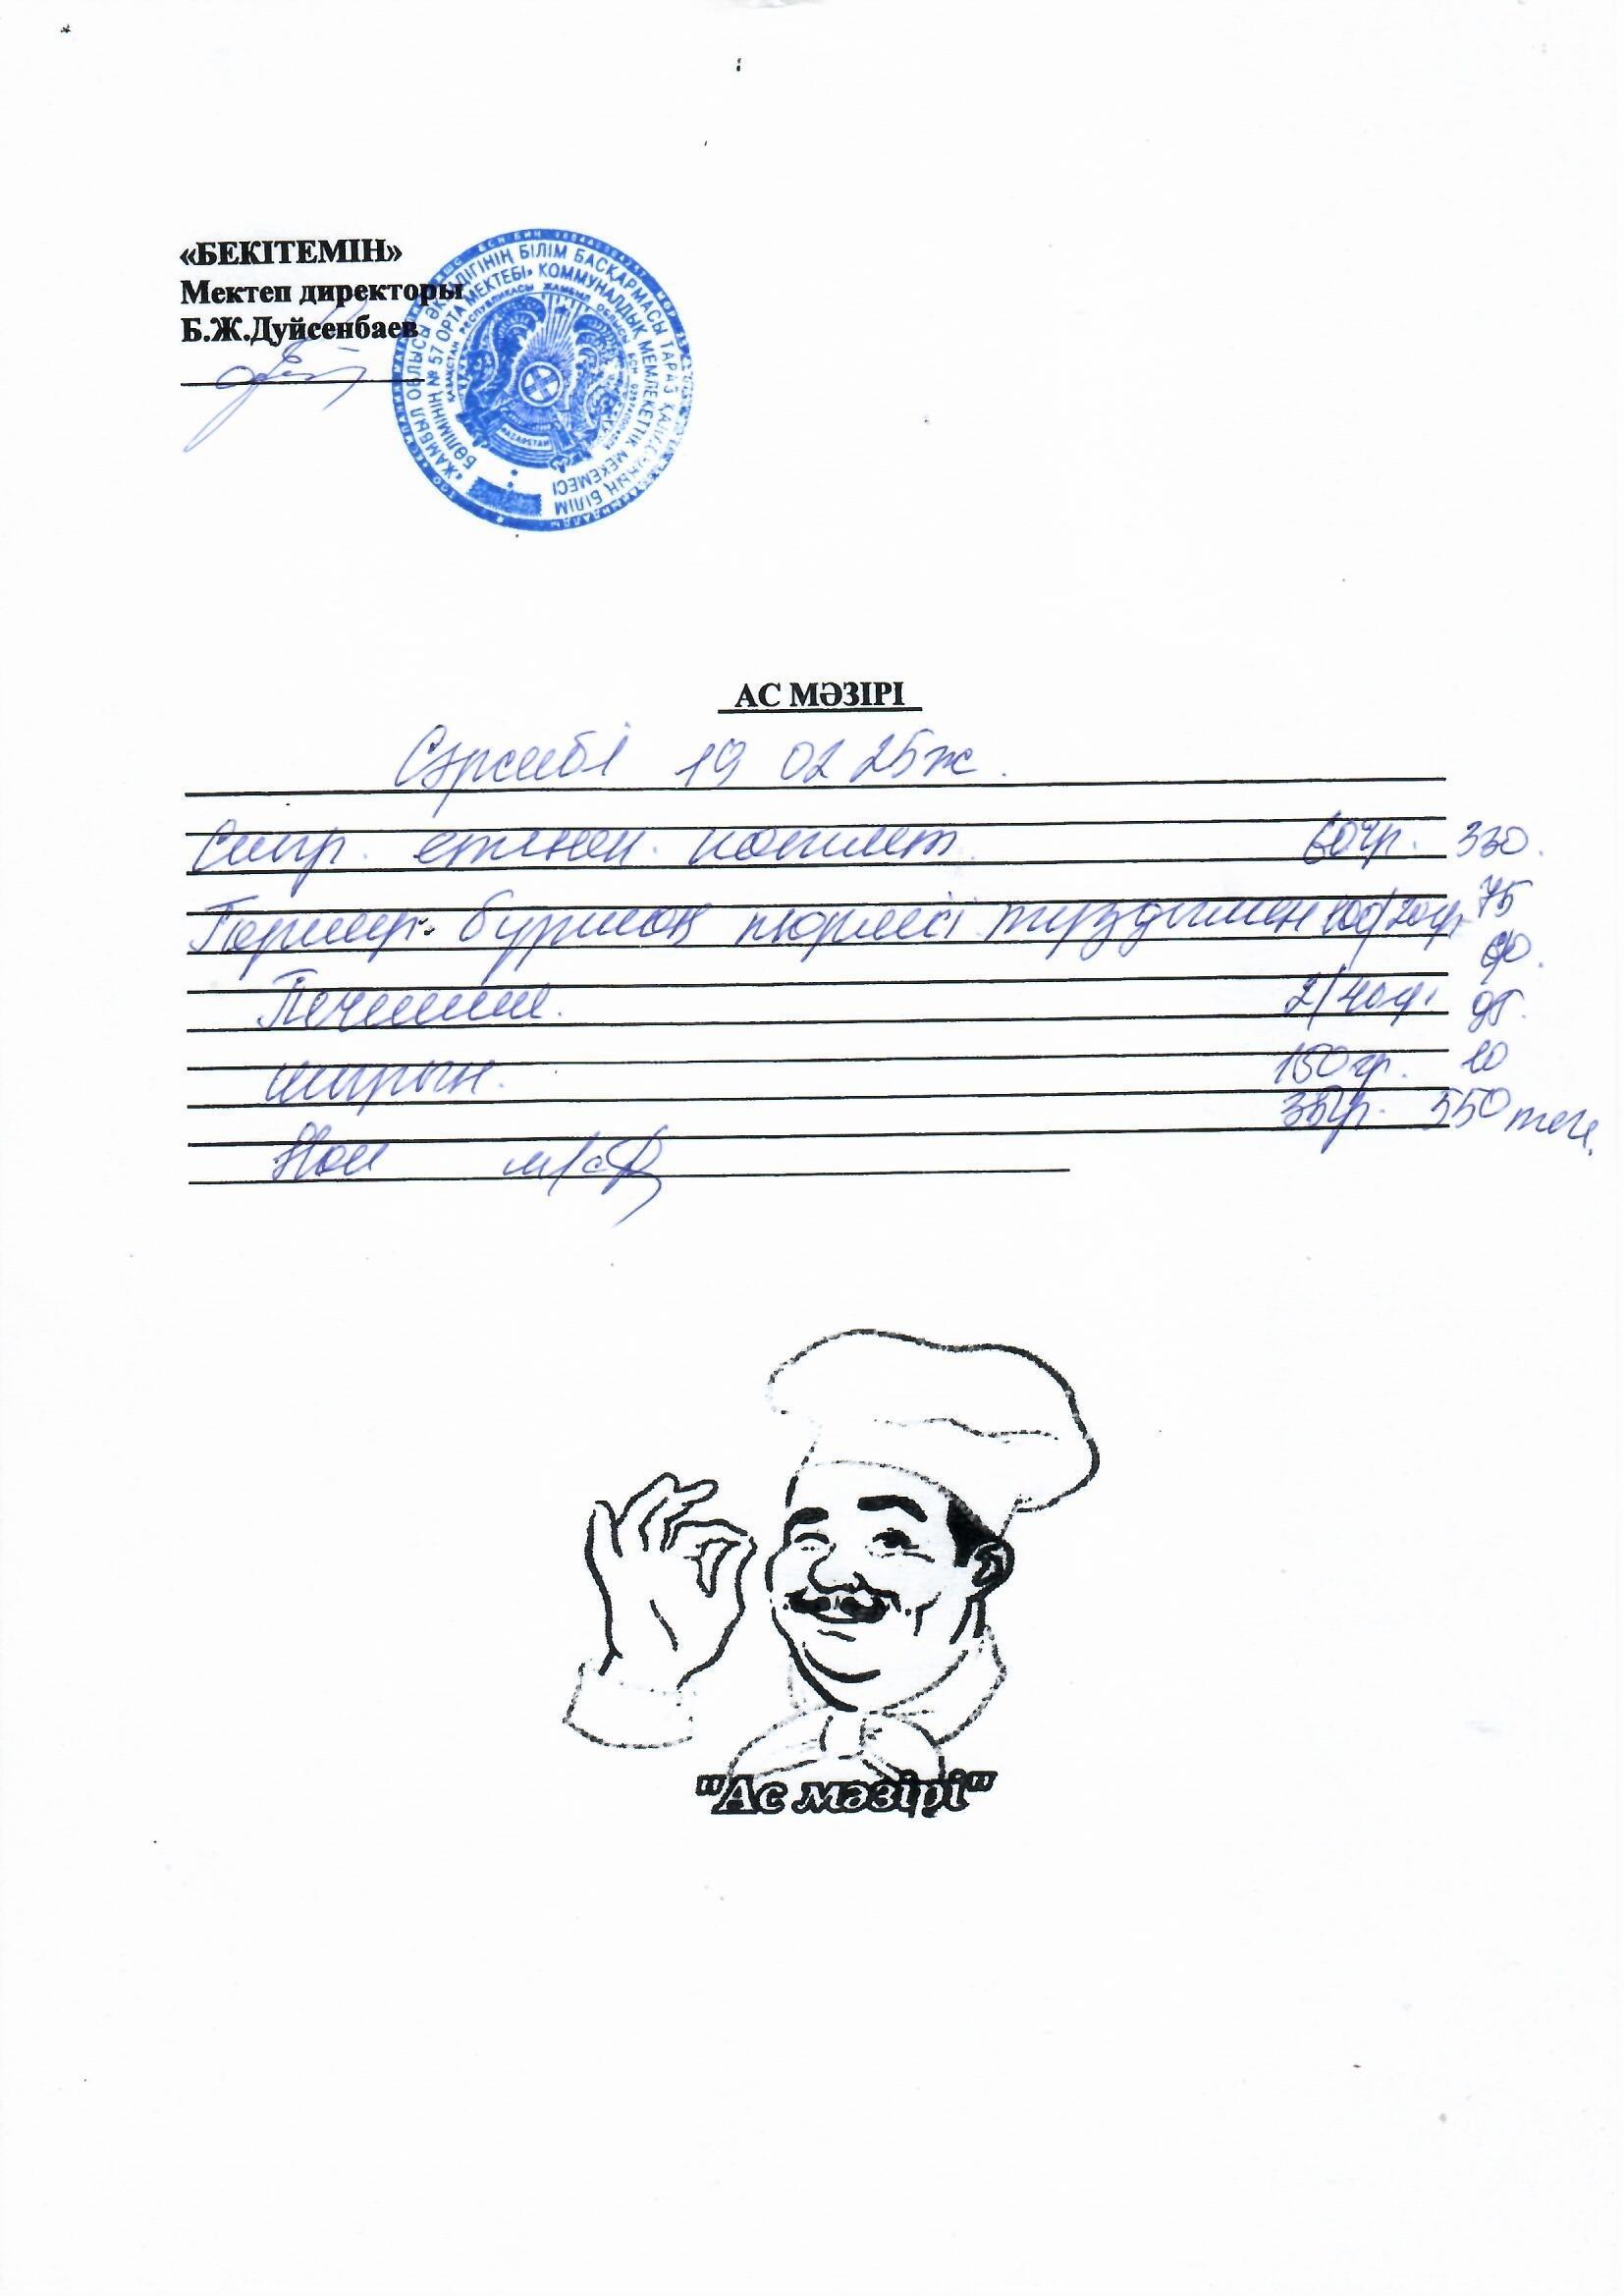 «БЕКІТЕМІН»
Мектеп директоры
Б.Ж.Дуйсенбаев
«ЖАМБЫЛ ОБЛЫСЫ ӘКІМДІГІНІҢ БІЛІМ БАСҚАРМАСЫ ТАРАЗ ҚАЛАСЫНЫҢ БІЛІМ
БӨЛІМІНІҢ № 57 ОРТА МЕКТЕБІ» КОММУНАЛДЫҚ МЕМЛЕКЕТТІК МЕКЕМЕСІ
ҚАЗАҚСТАН РЕСПУБЛИКАСЫ ЖАМБЫЛ ОБЛЫСЫ
АС МӘЗІРІ
Сәрсенбі 19 02 25ж.
Сиыр етінен котлет 60гр. 330.
Гарнир. бұршақ пюресі тұздықпен 100/20гр 75
60.
Печенье. 2/40гр. 95.
шырын. 150гр. 20
35гр. 550 тен.
Нан
"Ас мәзірі"